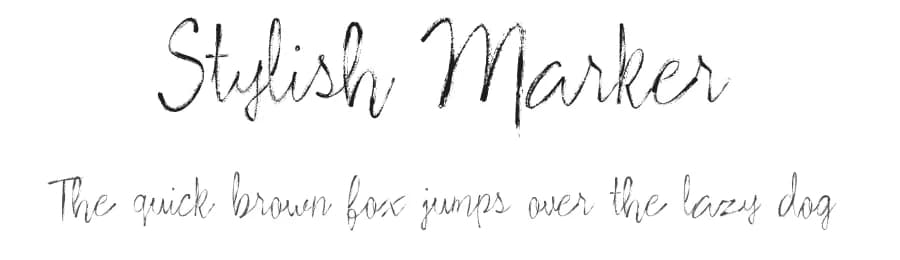 Stylish Marker
The quick brown fox jumps over the lazy dog